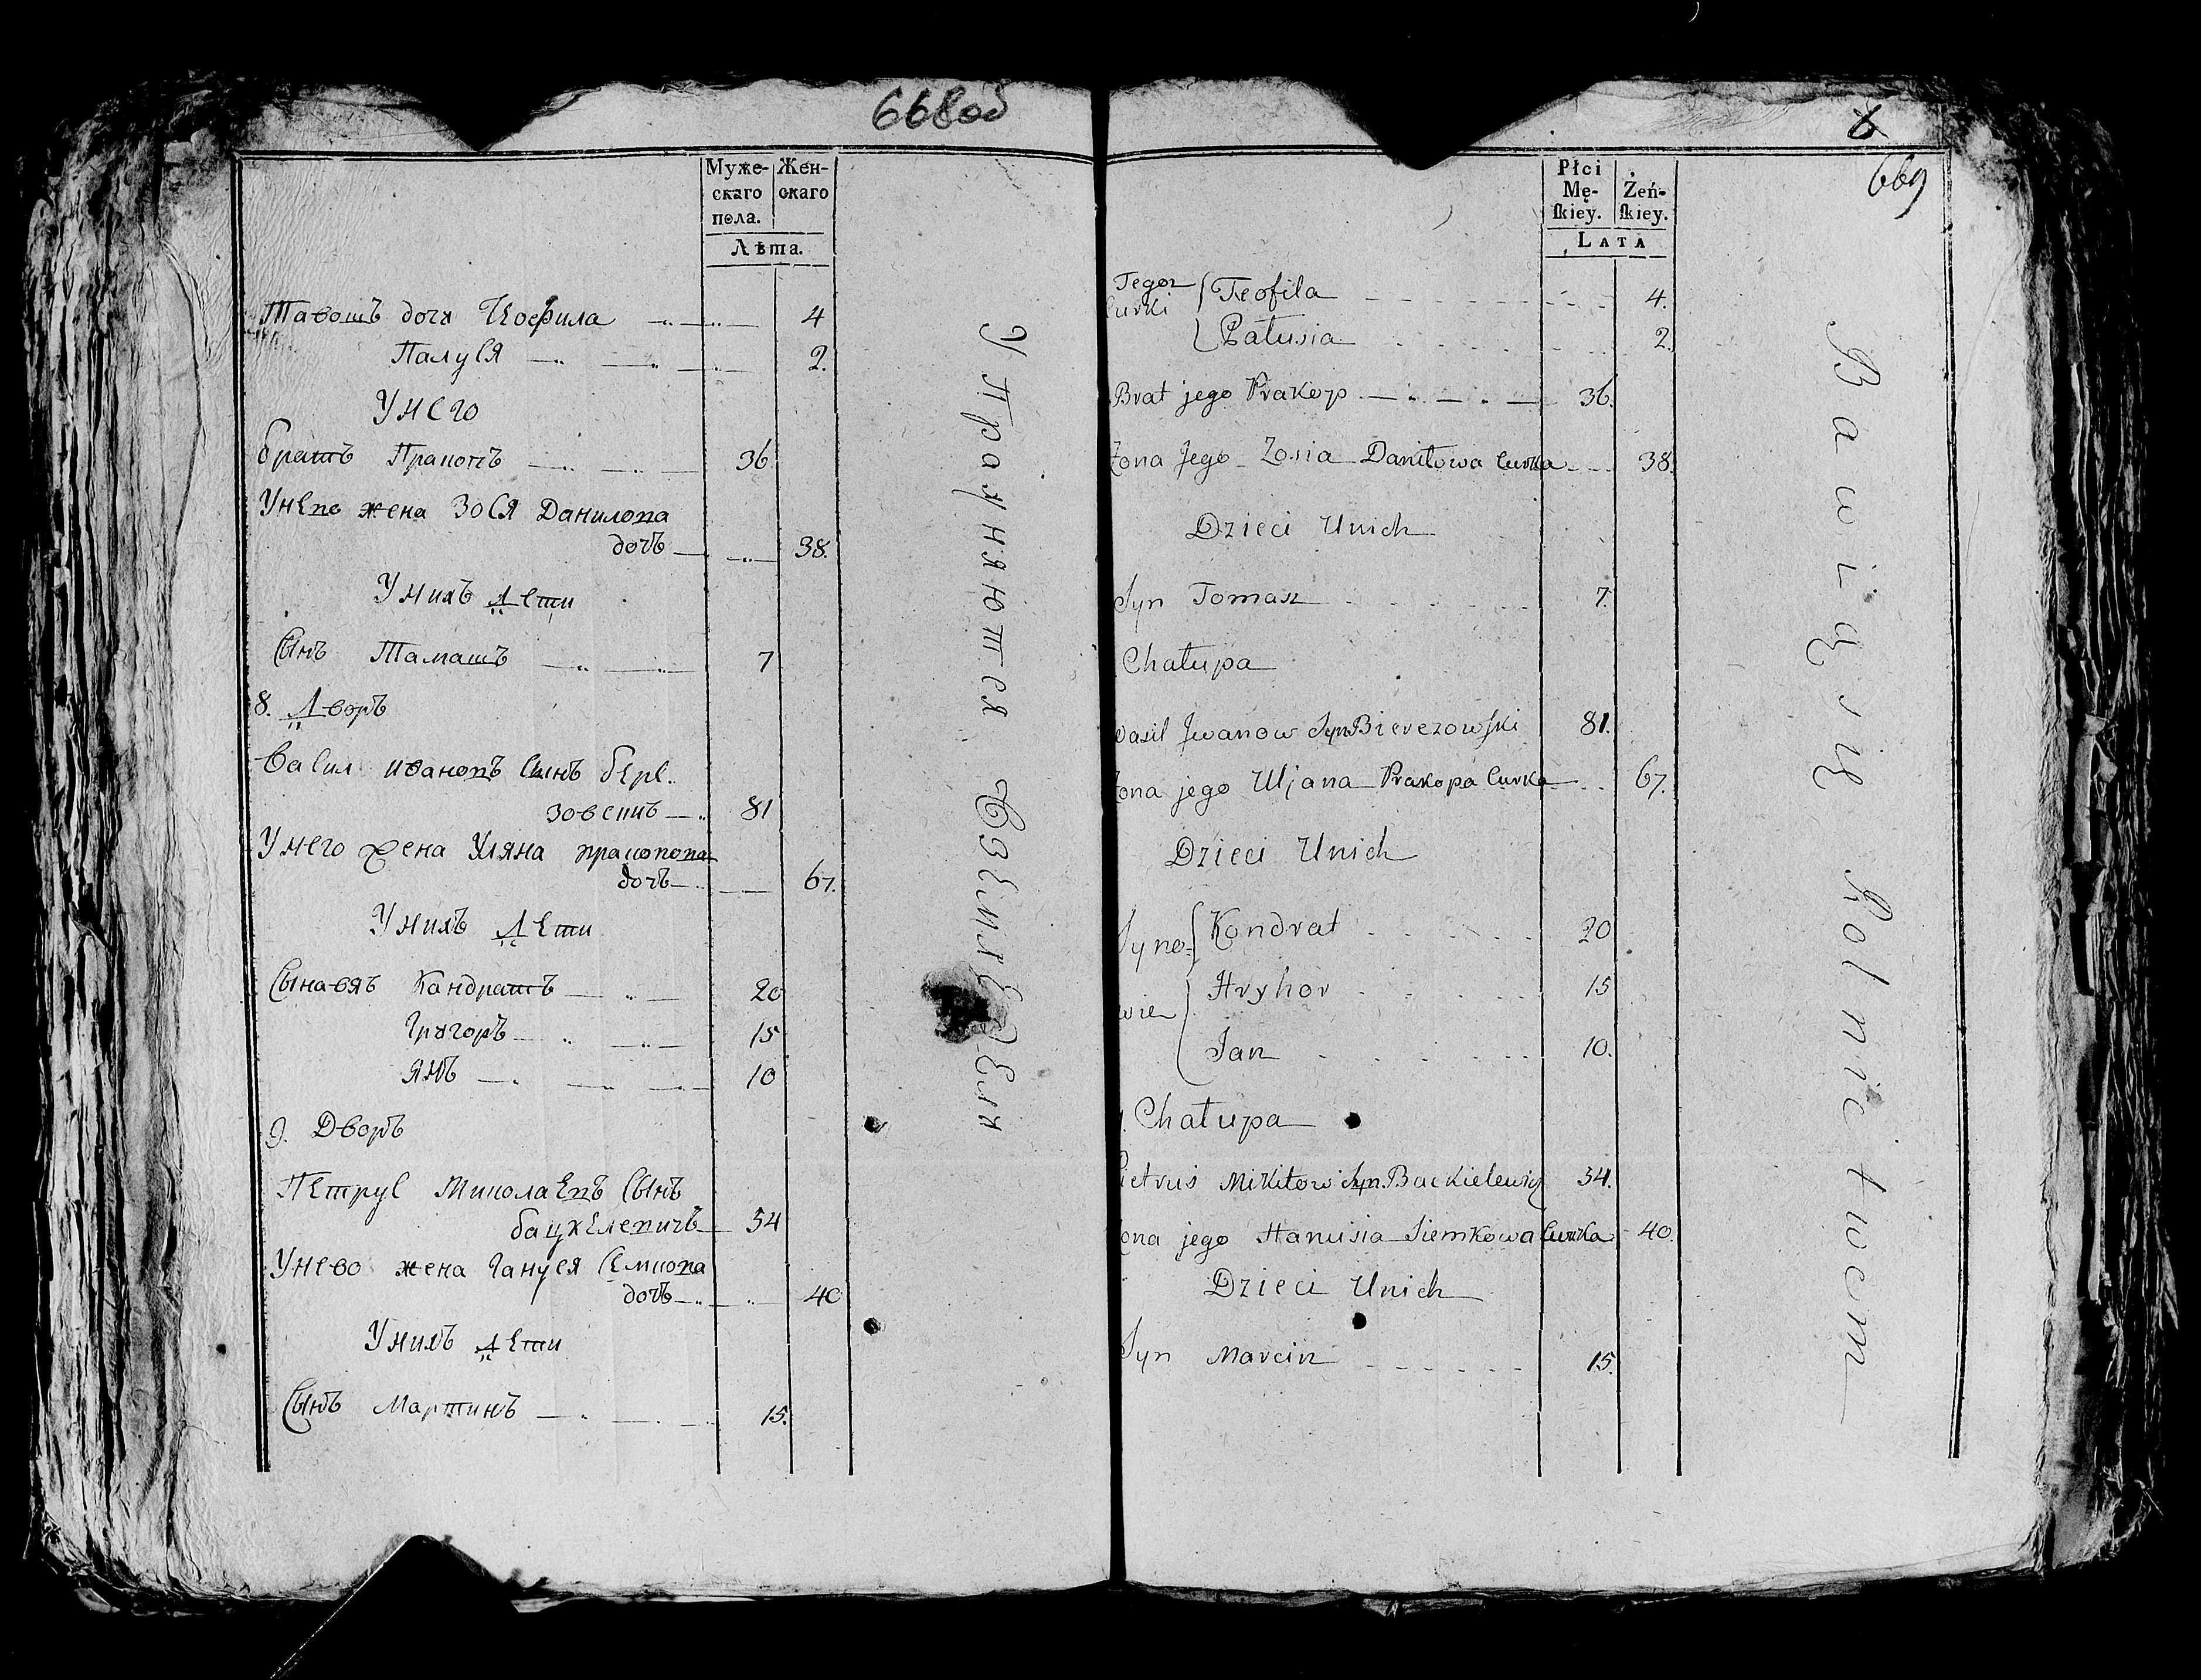 668об
Муже-
скаго
пола.
Жен-
скаго
Лѣта.
дочя Теофила 4
Палуся 2.
У него
братъ Пракопъ 36
У него жена Зося Данилова
дочъ 38.
У нихъ дети
Сынъ Тамашъ 7
8. Дворъ
Васил Ивановъ Сынъ бере.
зовский 81
У него жена Уляна пракопова
дочъ 67.
У нихъ дети
Сынавя Кандратъ 20
Григоръ 15
Янъ 10
9. Дворъ
Петрус Миколаевъ Сынъ
бацкелевичъ 54
У нево жена Гануся Семкова
дочъ 40
У нихъ дети
Сынъ Мартинъ 15.
Упражняются Вземледелии
6
669
Płci
Mę-
skiey.
Żeń-
skiey.
LATA
Tegoz
Curki
Teofila 4.
Pałusia 2.
Brat jego Prakop 36.
Zona Jego Zosia Daniłowa Curka 38.
Dzieci Unich
Syn Tomasz 7.
Chałupa
Wasil Jwanow Syn Bierezowski 81.
Zona jego Uljana Prakopa Curka 67.
Dzieci Unich
Syno-
wie
Kondrat 20
Hryhor 15
Jan 10.
Chałupa
Pietrus Mikitow Syn Backielewicz 54.
Zona jego Hanusia Siemkowa Curka 40.
Dzieci Unich
Syn Marcin 15.
Bawią się Rolnictwem